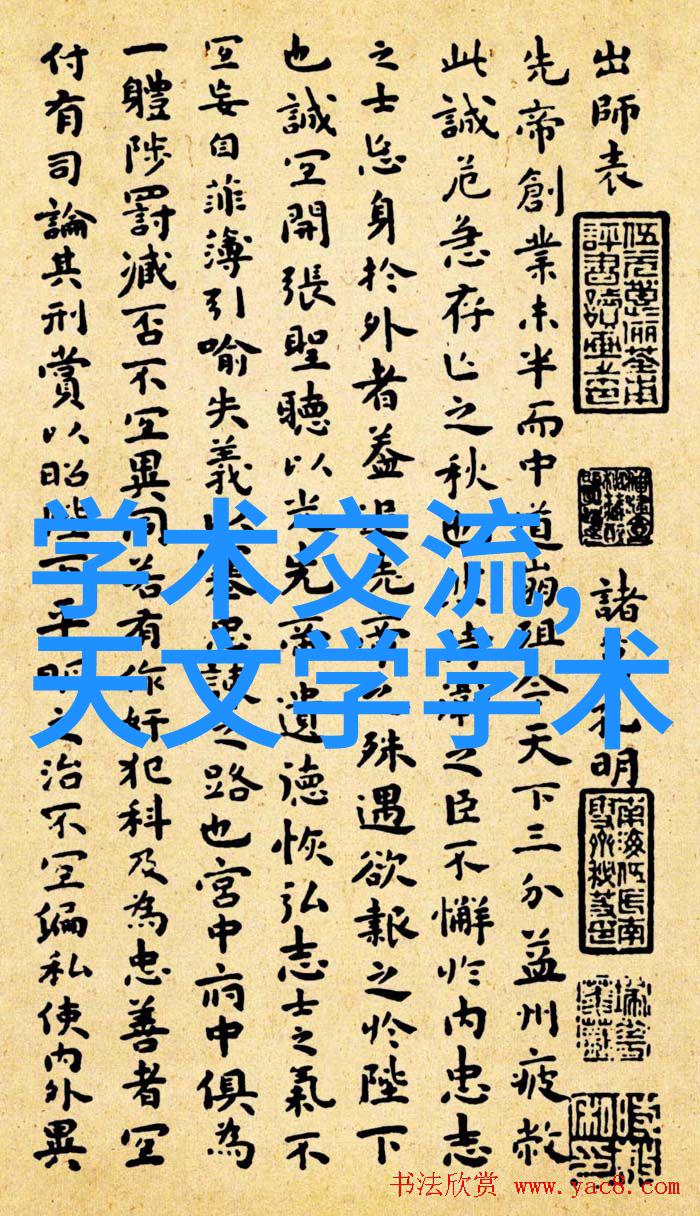 出師表
諸葛孔明
先帝創業未半而中道崩殂今天下三分益州疲敝
此誠危急存亡之秋也然侍衛之臣不懈於内忠志
之士忘身於外者蓋追先帝之殊遇欲報之於陛下
也誠宜開張聖聽以光先帝遺德恢弘志士之氣不
宜妄自菲薄引喻失義以塞忠諫之路也宮中府中俱為
一體陟罰臧否不宜異同若有作奸犯科及為忠善者宜
付有司論其刑賞以昭陛下平明之治不宜偏私使内外異
学术交流,
天文学学术
书法欣赏 www.yac8.com